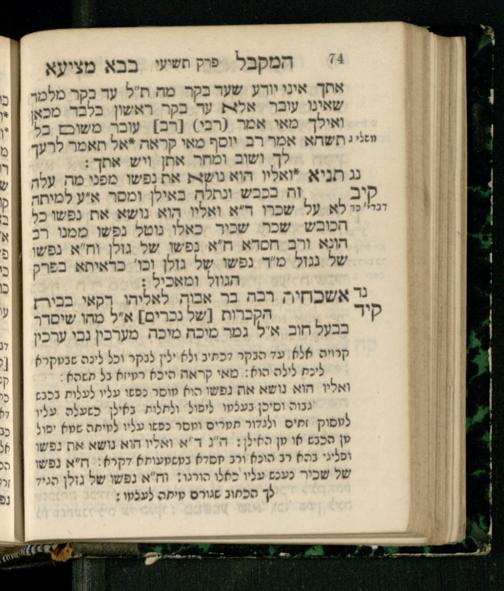 74 המקבל פרק תשיעי בבא מציעא
אתך איני יודע שעד בקר מה ת"ל עד בקר מלמד
שאינו עובר אלא עד בקר ראשון בלבד מכאן
ואילך מאי אמר (רבי) [רב] עובר משום בל
משלי ג תשהא אמר רב יוסף מאי קראה *אל תאמר לרעך
לך ושוב ומחר אתן ויש אתך :
נג תניא *ואליו הוא נושא את נפשו מפני מה עלה
קיב זה בכבש ונתלה באילן ומסר א"ע למיתה
דברי' כד לא על שכרו ד"א ואליו הוא נושא את נפשו כל
הכובש שכר שכיר כאלו נוטל נפשו ממנו רב
הונא ורב חסדא ח"א נפשו של גזלן וח"א נפשו
של נגזל מ"ד נפשו של גזלן וכו' כדאיתא בפרק
הגוזל ומאכיל :
נד אשכחיה רבה בר אבוה לאליהו דקאי בבית
קיד הקברות [של נכרים] א"ל מהו שיסדר
בבעל חוב א"ל גמר מיכה מיכה מערכין גבי ערכין
קרויה אלא עד הבקר דכתיב ולא ילין לבקר וכל לינה שבמקרא
לינת לילה הוא: מאי קראה היכא רמיזא בל תשהא:
ואליו הוא נושא את נפשו הוא מוסר נפשו עליו לעלות בכבש
גבוה ומסיכן בעצמו ליפול ולתלות באילן כשעלה עליו
למסוק זתים ולגדור תמרים ומסר נפשו עליו למיתה שמא יפול
מן הכבש או מן האילן: ה"ג ד"א ואליו הוא נושא את נפשו
ופליגי בהא רב הונא ורב חסדא במשמעותא דקרא: ח"א נפשו
של שכיר נענש עליו כאלו הורגו: וח"א נפשו של גזלן הגיד
לך הכתוב שגורם מיתה לעצמו: